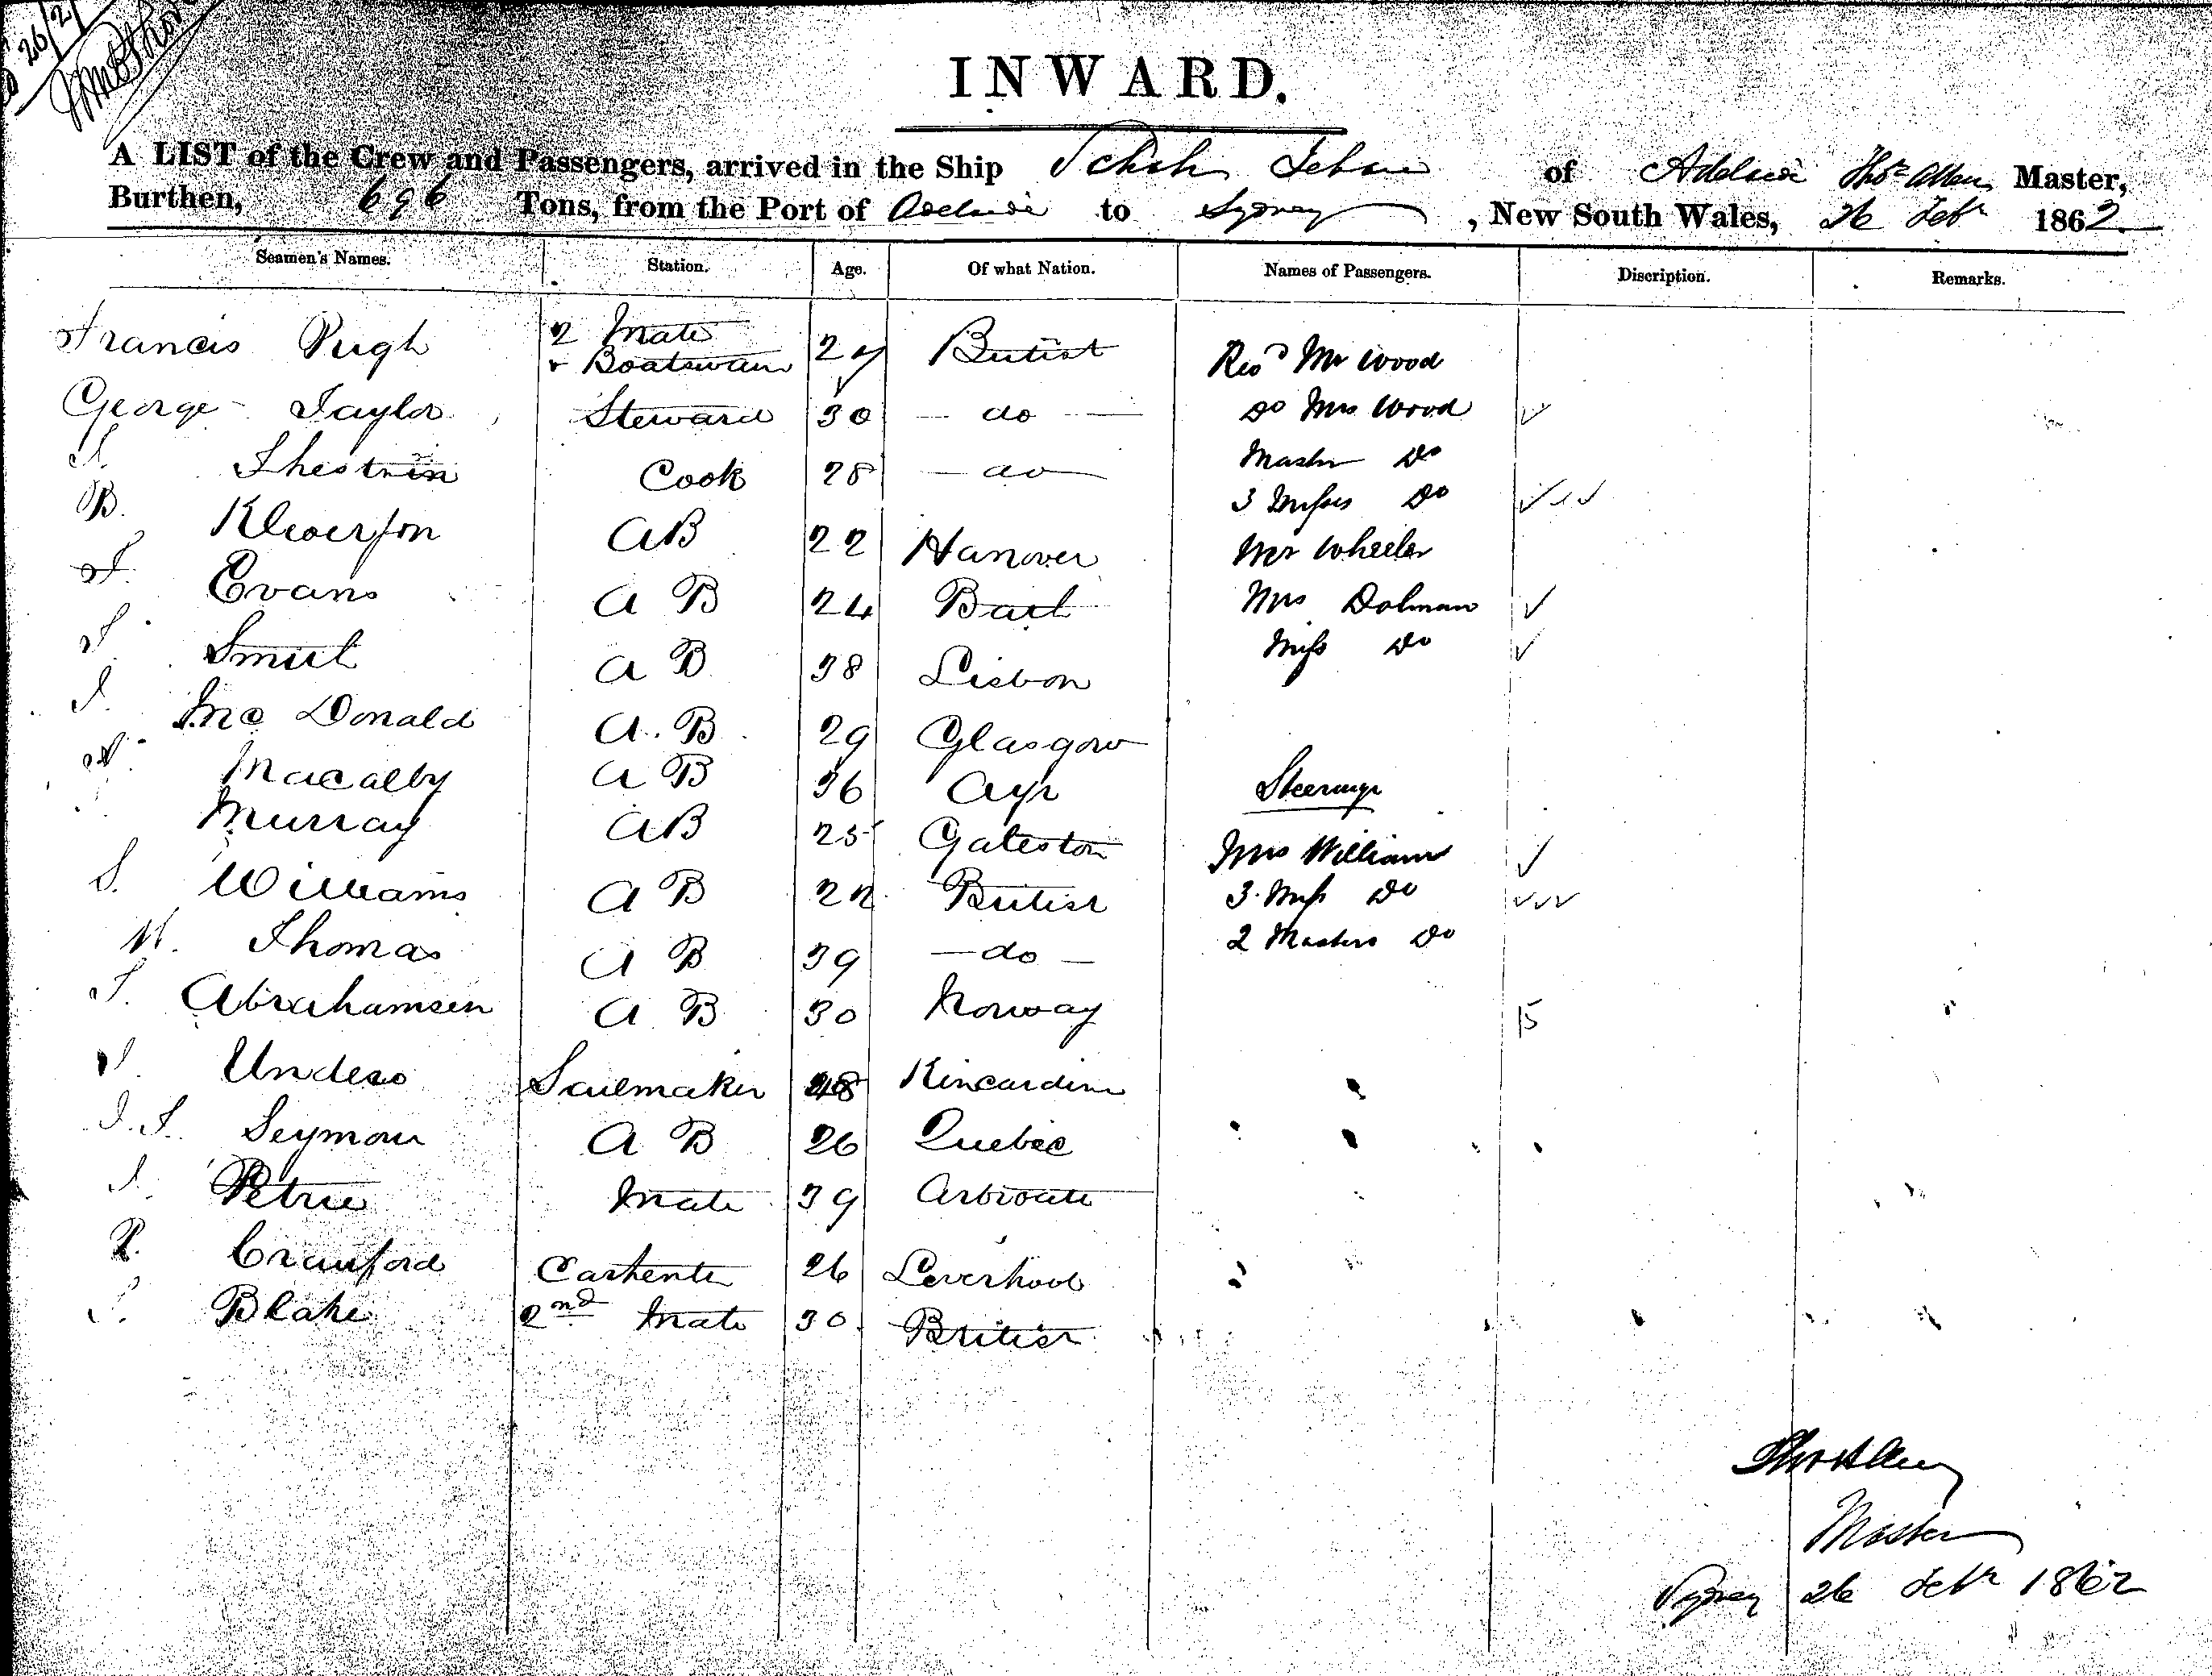 26/2
INWARD.
A LIST of the Crew and Passengers, arrived in the Ship Schah Jehan of Adelaide Thos Allen Master,
Burthen, 696 Tons, from the Port of Adelaide to Sydney, New South Wales, 26 Feby 1862
Seamen's Names. Station. Age. Of what Nation. Names of Passengers. Discription. Remarks.
Francis Pugh 2 Mate & Boatswain 27 British Revd Mr Wood
George Taylor Steward 30 do Do Mrs Wood
Cook 28 do Master Do
3 Misses Do
B. AB 22 Hanover Mr Wheeler
Evans A B 24 Mrs Dolman
A B 38 Lisbon Miss Do
Mc Donald A. B 29 Glasgow
Macalby A B 36 Ayr Steerage
Murray AB 25 Gateston Mrs Williams
S. Williams A B 22 British 3 Miss Do
W. Thomas A B 39 do 2 Masters Do
Abrahamsen A B 30 Norway 15
Sailmaker 48 Kincardine
Seymour A B 26 Quebec
Petrie Mate 39 Arbroath
R. Crawford Carpenter 26 Liverpool
Blake 2nd Mate 30 British
Thos Allen
Master
Sydney 26 Feby 1862